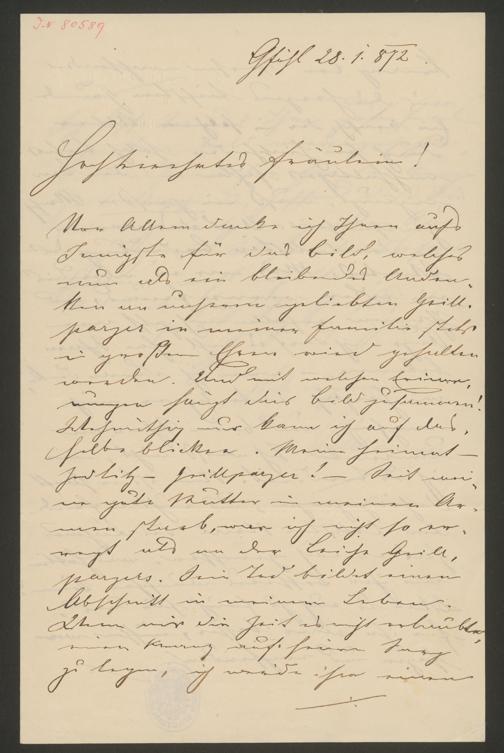 I.N 80589
Gföhl 28. 1. 872.
Hochverehrtes Fräulein!
Vor Allem danke ich Ihnen aufs
Innigste für das Bild, welches
nun als ein bleibendes Anden-
ken an unseren geliebten Grill-
parzer in meiner Familie stets
in großen Ehren wird gehalten
werden. Und mit welchen Erinne-
rungen hängt dies Bild zusammen!
Wehmüthig nur kann ich auf das-
selbe blicken. Meine Heimat –
Zedlitz – Grillparzer! – Seit mei-
ne gute Mutter in meinen Ar-
men starb, war ich nicht so er-
regt als an der Leiche Grill-
parzers. Sein Tod bildet einen
Abschnitt in meinem Leben.
Wenn mir die Zeit es nicht erlaubte,
einen Kranz auf seinen Sarg
zu legen, ich werde ihm einen